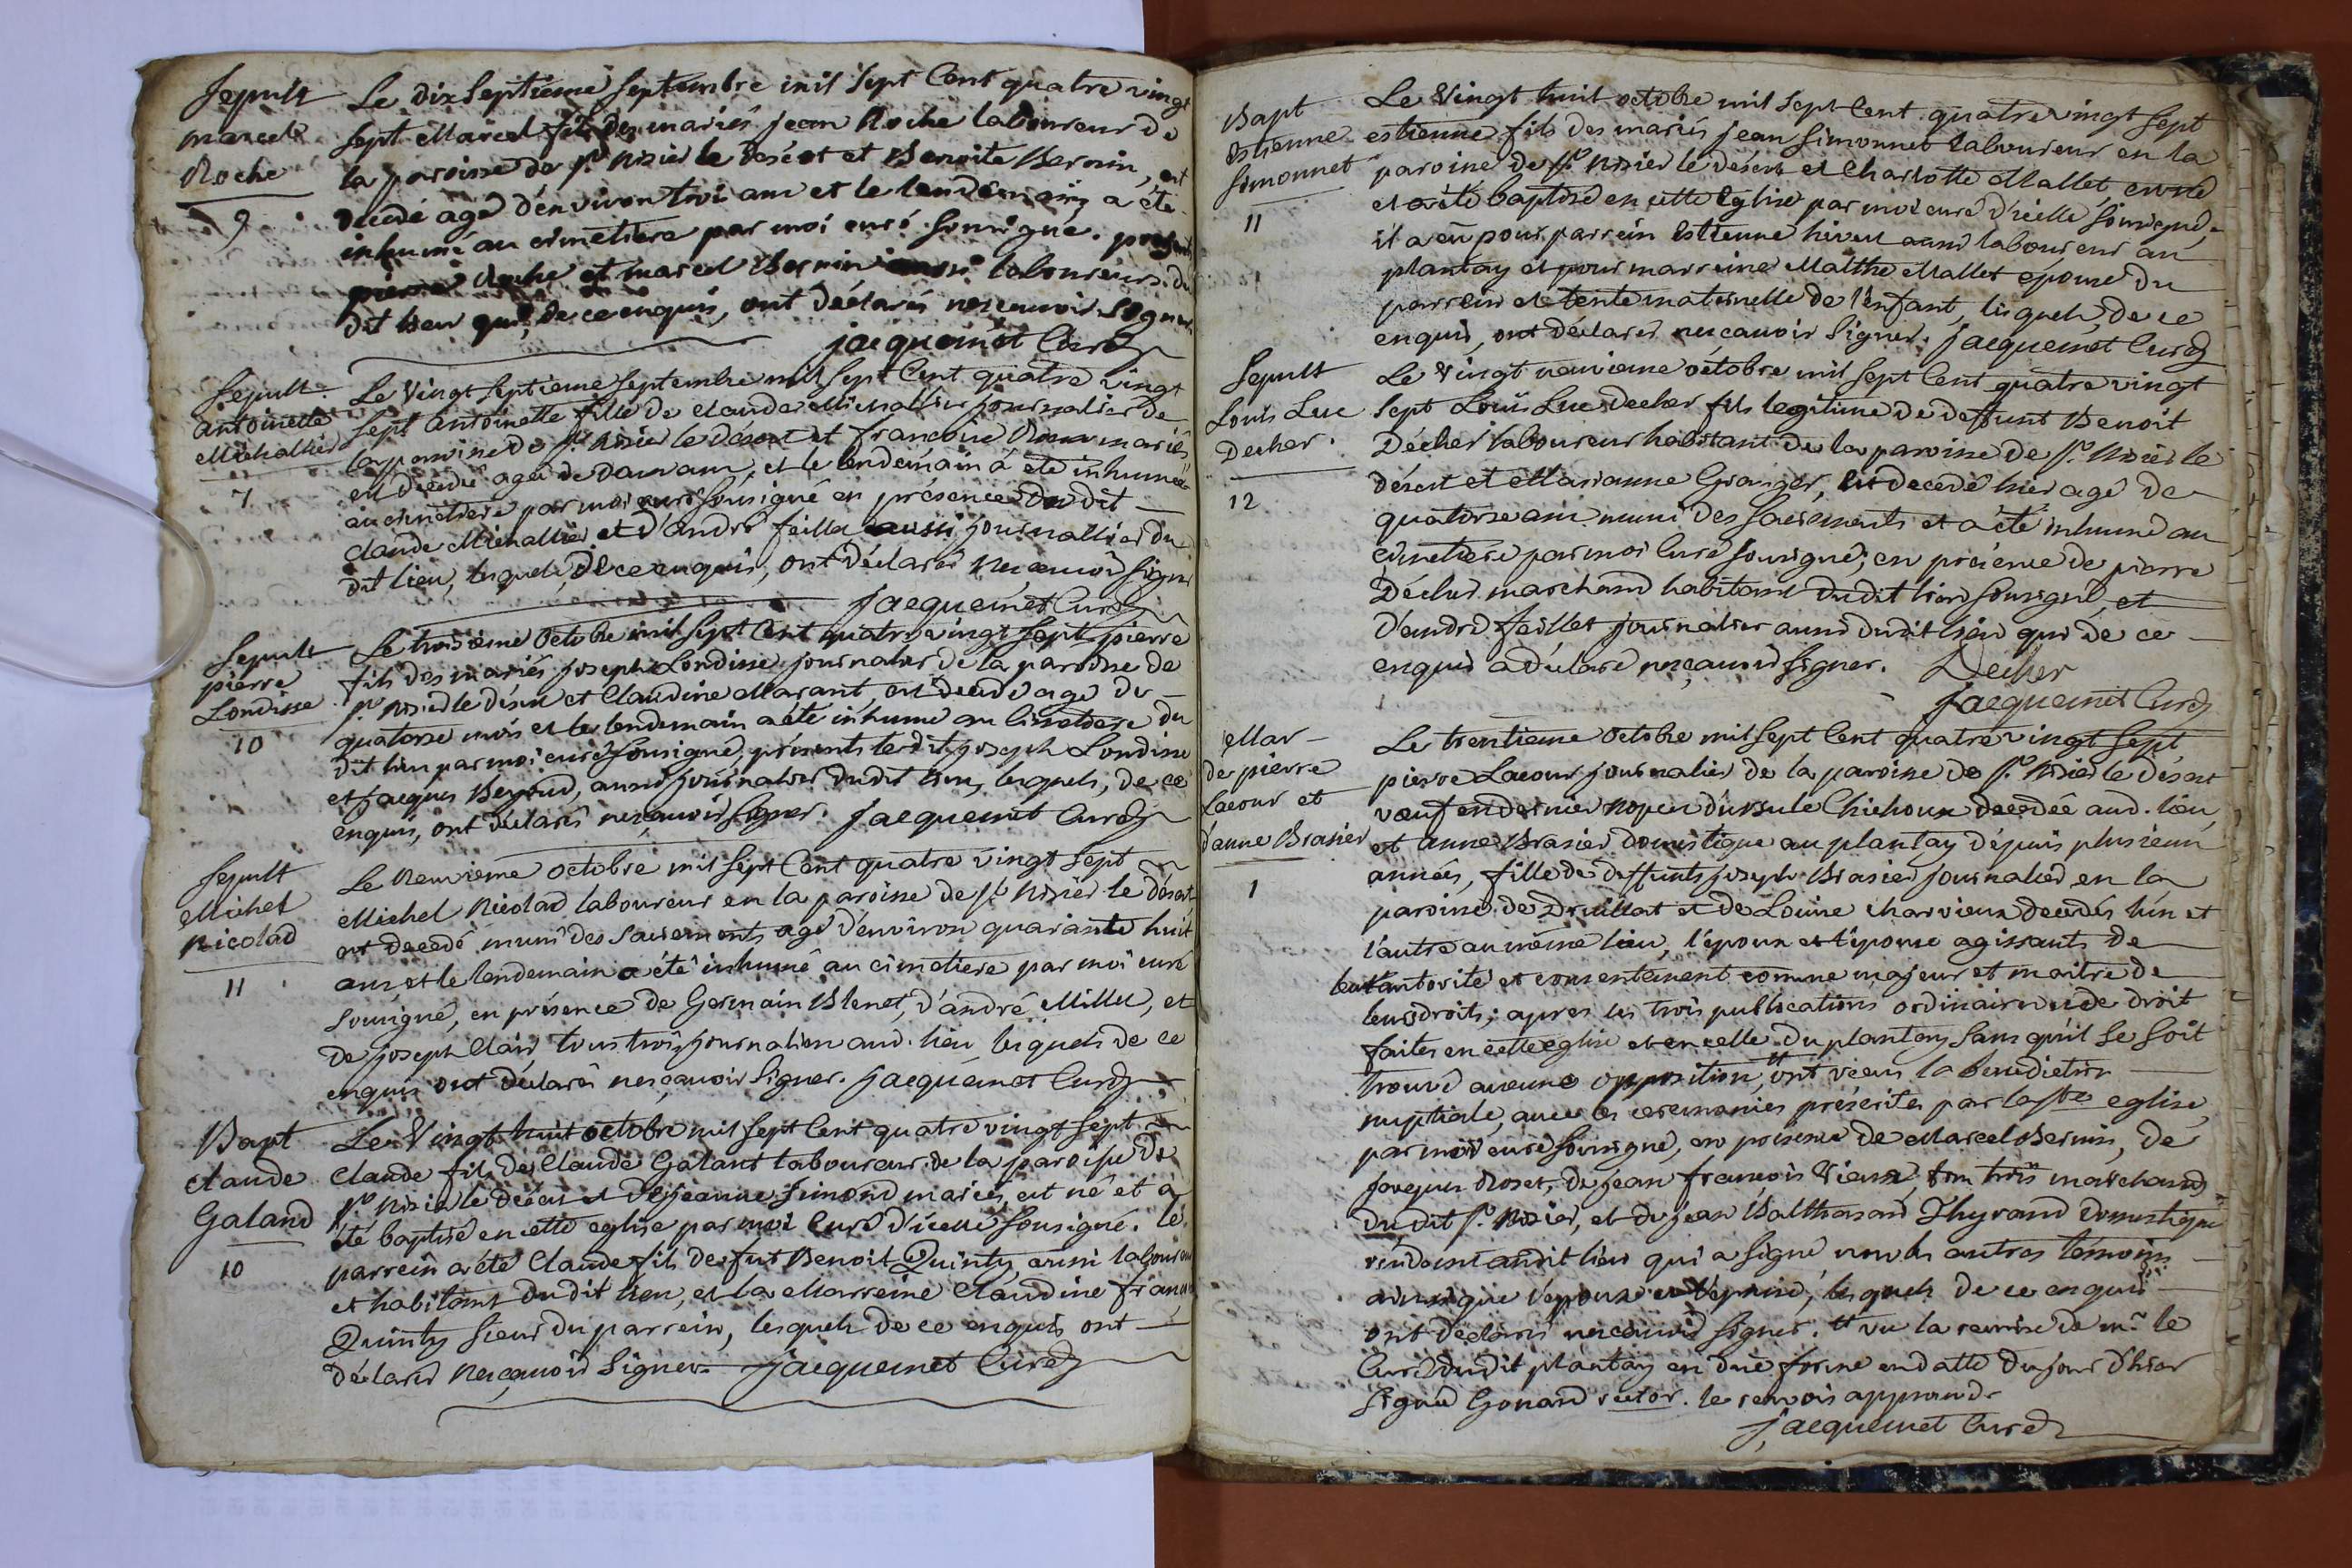 Sepult
marcel
Roche
9
Le dix septième Septembre mil Sept Cent quatre vingt
sept Marcel fils des mariés jean Roche laboureur de
la paroisse de st. Nizier le desert et Benoite Bernin, est
décédé agé d'environ trois ans et le lendemain a été
inhumé au cimetiere par moi curé soussigné. présents
pierre Roche et marcel Bernin aussi laboureurs du
dit lieu qui, de ce enquis, ont déclarés nesçauoir signer.
jacquemet Curé
Sepult.
antoinette
Michallier
7
Le Vingt septieme septembre mil sept Cent quatre vingt
sept antoinette fille de claude Michallier journalier de
la paroisse de st. Nizier le désert et francoise mariés
est décédée agée de deux ans, et le lendemain a été inhumée
au cimetiere par moi curé soussigné en présence du dit
claude Michallier et d'andré feilla aussi journallier du
dit lieu, lesquels, de ce enquis, ont déclarés nesçauoir signer
jacquemet Curé
Sepult
pierre
Londisse
10
Le troisieme Octobre mil sept Cent quatre vingt sept pierre
fils des mariés joseph Londisse journalier de la paroisse de
st. Nizier le désert et Claudine Marant, est décédé agé de
quatorse mois et le lendemain a été inhumé au cimetiere du
dit lieu par moi curé soussigné, présents ledit joseph Londisse
et jacques Beyoud, aussi journalier dudit lieu, lesquels, de ce
enquis, ont déclarés nesçauoir signer. jacquemet Curé
Sepult
Michel
Nicolad
11
Le Neuvieme octobre mil sept Cent quatre vingt sept
Michel Nicolad laboureur en la paroisse de st Nizier le désert
est décédé muni des sacrements agé d'environ quarante huit
ans et le lendemain a été inhumé au cimetiere par moi curé
soussigné, en présence de Germain Blenet, d'andré Millet, et
de joseph Clair tous trois journaliers aud. lieu lesquels de ce
enquis ont déclarés nesçauoir signer. jacquemet Curé
Bapt
claude
Galand
10
Le Vingt huit octobre mil sept Cent quatre vingt sept
Claude fils de Claude Galant laboureur de la paroisse de
st. Nizier le désert et de jeanne Simond mariés, est né et a
été baptisé en cette eglise par moi Curé d'icelle soussigné. le
parrein a été Claude fils de fut Benoit Quinty aussi laboureur
et habitant dudit lieu, et la Marreine Claudine
Quinty sœur du parrein, lesquels de ce enquis ont
déclarés nesçauoir signer. jacquemet Curé
Bapt
Estienne
Simonnet
11
Le Vingt huit octobre mil sept Cent quatre vingt sept
estienne fils des mariés jean Simonnet laboureur en la
paroisse de st Nizier le desert et Charlotte Mallet, est né
et a été baptisé en cette Eglise par moi curé d'icelle soussigné,
il a eû pour parrein Estienne aussi laboureur au
plantay et pour marreine Malthe Mallet epouse du
parrein et tente maternelle de l'enfant, lesquels, de ce
enquis, ont déclarés nesçauoir signer. jacquemet Curé
Sepult
Louis Luc
Decher.
12
Le Vingt neuvieme octobre mil sept Cent quatre vingt
sept Louis Luc Decher fils legitime de deffunt Benoit
Décher laboureur habitant de la paroisse de st. Nizier le
désert et Marianne Granger, est décédé hier agé de
quatorse ans muni des sacrements et a été inhumé au
cimetiere par moi Curé soussigné, en présence de pierre
Décher marchand habitant dudit lieu soussigné, et
d'andré feillet journalier aussi dudit lieu qui de ce
enquis a déclaré nesçauoir signer. Decher
jacquemet Curé
Mar
de pierre
Lacour et
d'anne Brasier
1
Le trentieme Octobre mil sept Cent quatre vingt sept
pierre Lacour journalier de la paroisse de st. Nizier le désert
vœuf en dernier nopces d'ursule Chichoux décédée aud. lieu,
et anne Brasier domestique au plantay dépuis plusieurs
années, fille de deffunts joseph Brasier journalier en la
paroisse de Druillat et de Louise charvieux décédés l'un et
l'autre au même lieu, l'époux et l'épouse agissants de
leur autorité et consentement comme majeur et maitre de
leurs droits; apres les trois publications ordinaires et de droit
faites en cette eglise et en celle du plantay sans qu'il se soit
trouvé aucune opposition, ont reçu la benediction
nuptiale, avec les ceremonies préscrites par la ste eglise,
par moi curé soussigné, en présence de Marcel Bernin, de
jacques Roset, de jean françois Vieux, tous trois marchands
du dit st. Nizier, et de jean Balthasard Thyrand domestique
résident audit lieu qui a signé non les autres témoins
ainsi que l'époux et l'épouse, lesquels de ce enquis
ont déclarés nesçauoir signer. vu la remise de mr. le
Curé dudit plantay en due forme en datte du jour d'hier
signé Gonard rector. le renvois approuvé
jacquemet Curé